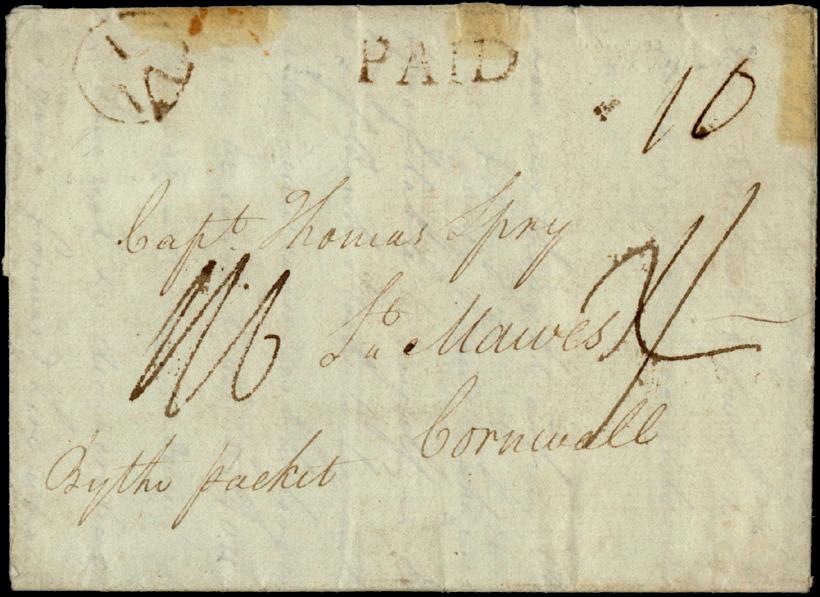 1
12
PAID
10
Capt. Thomas Spry
St Mawes
Cornwall
By the packet